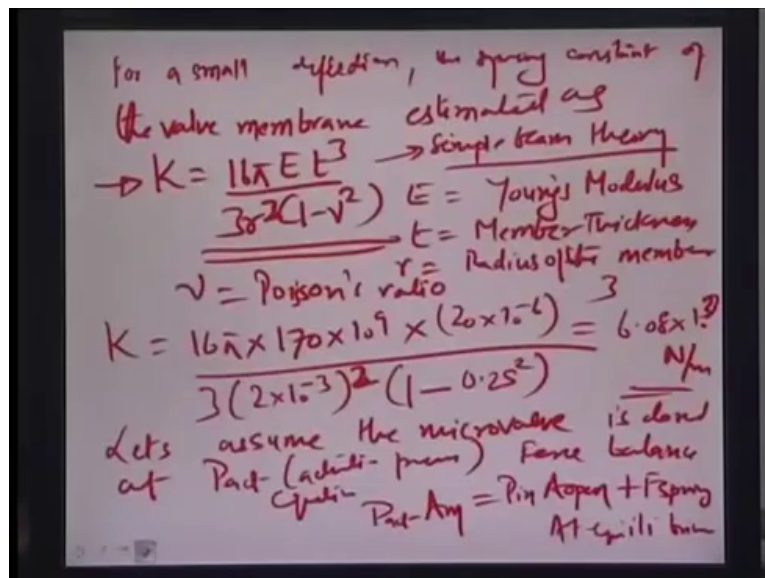 For a small deflection, the spring constant of
the valve membrane estimated as
→ K = 16π E t³ / 3r²(1-ν²) → Simple beam theory
E = Young's Modulus
t = Member Thickness
r = Radius of the member
ν = Poison's ratio
K = 16π × 170 × 10⁹ × (20 × 10⁻⁶)³ / 3(2 × 10⁻³)² (1 - 0.25²) = 6.08 × 10³ N/m
Lets assume the microvalve is closed
at Pact (actuti- press) Force balance
equatin
Pact Am = Pin Aopen + Fspring
At equilibrium